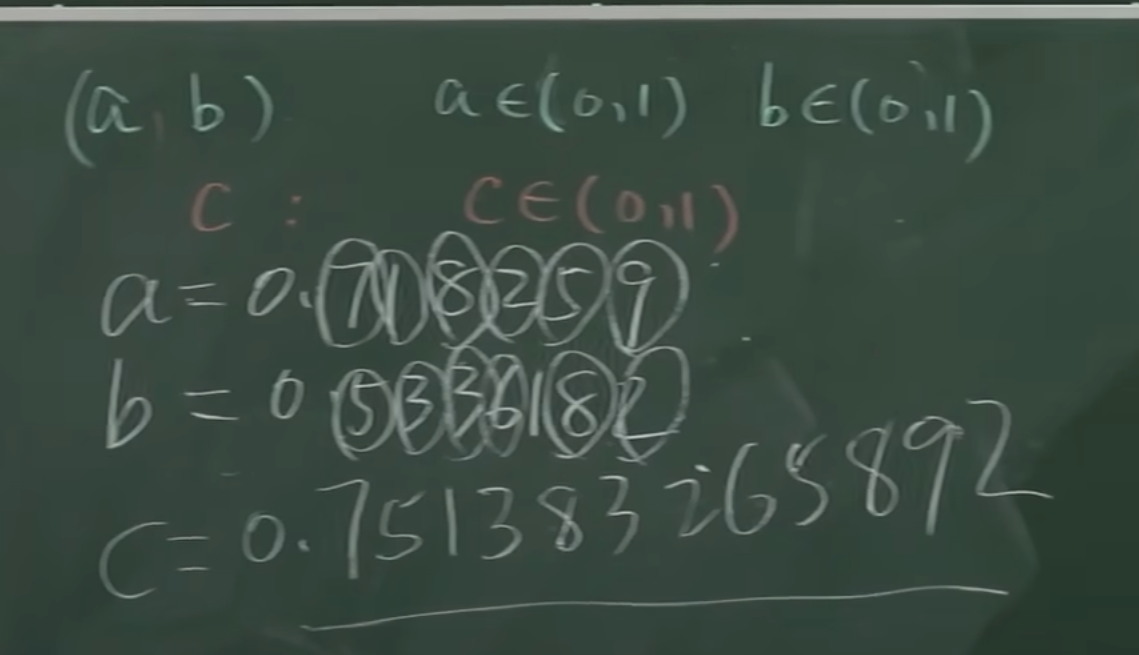 (a, b) a∈(0,1) b∈(0,1)
c : c∈(0,1)
a=0.718259
b=0.5336182
c=0.751383265892